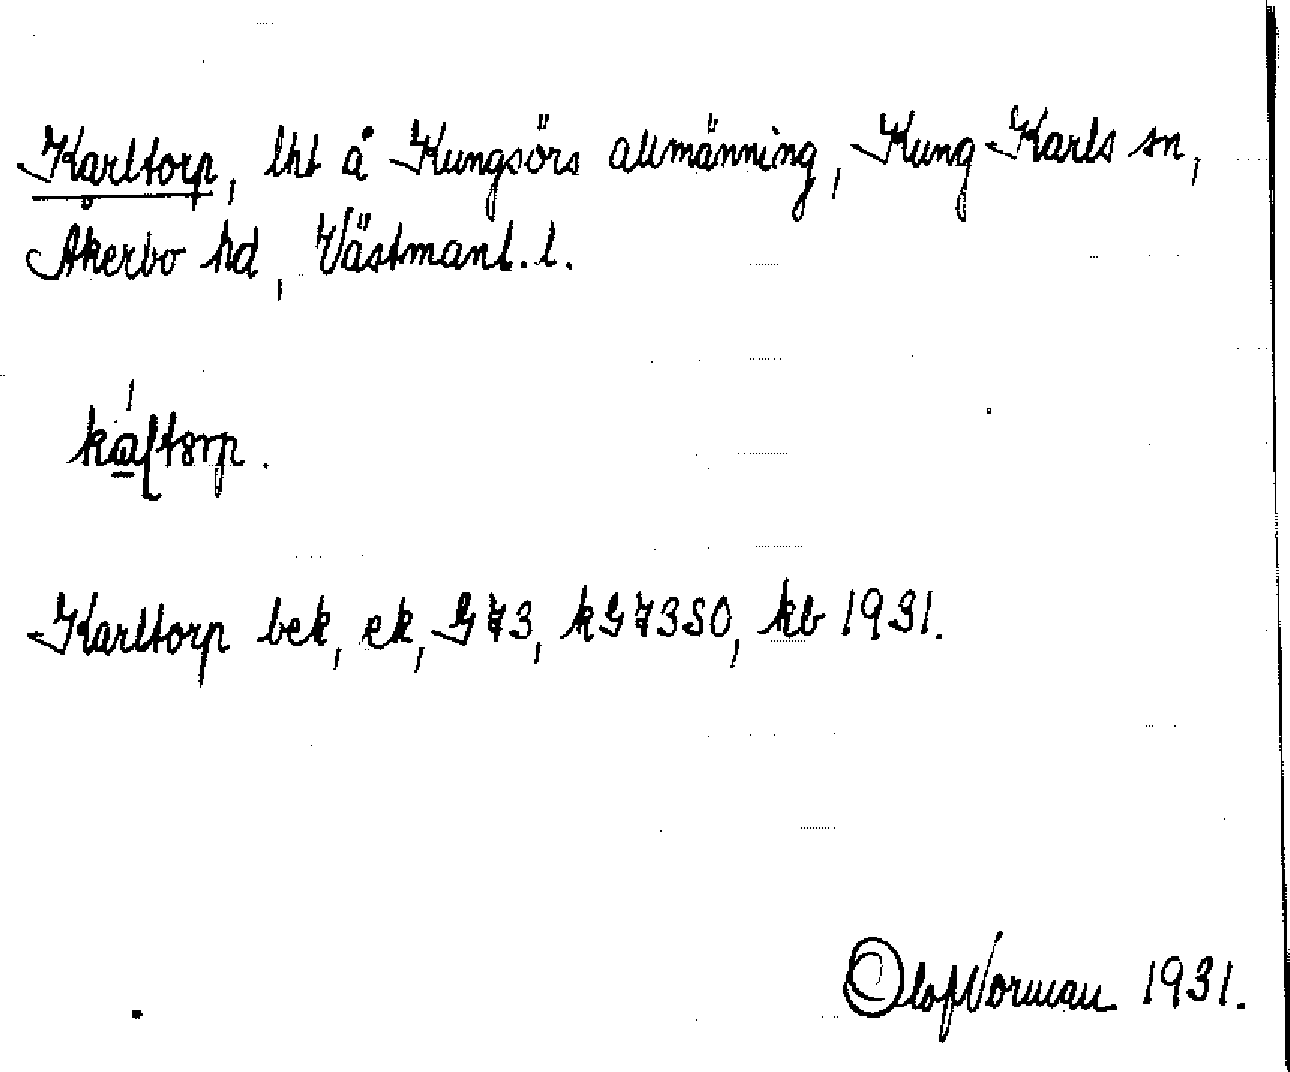 Karltorp, lht å Kungsörs allmänning, Kung Karls sn,
Åkerbo hd, Västmanl. l.
Karltorp bek, ek, G73, kG73SO, kb 1931.
Olof Norman 1931.